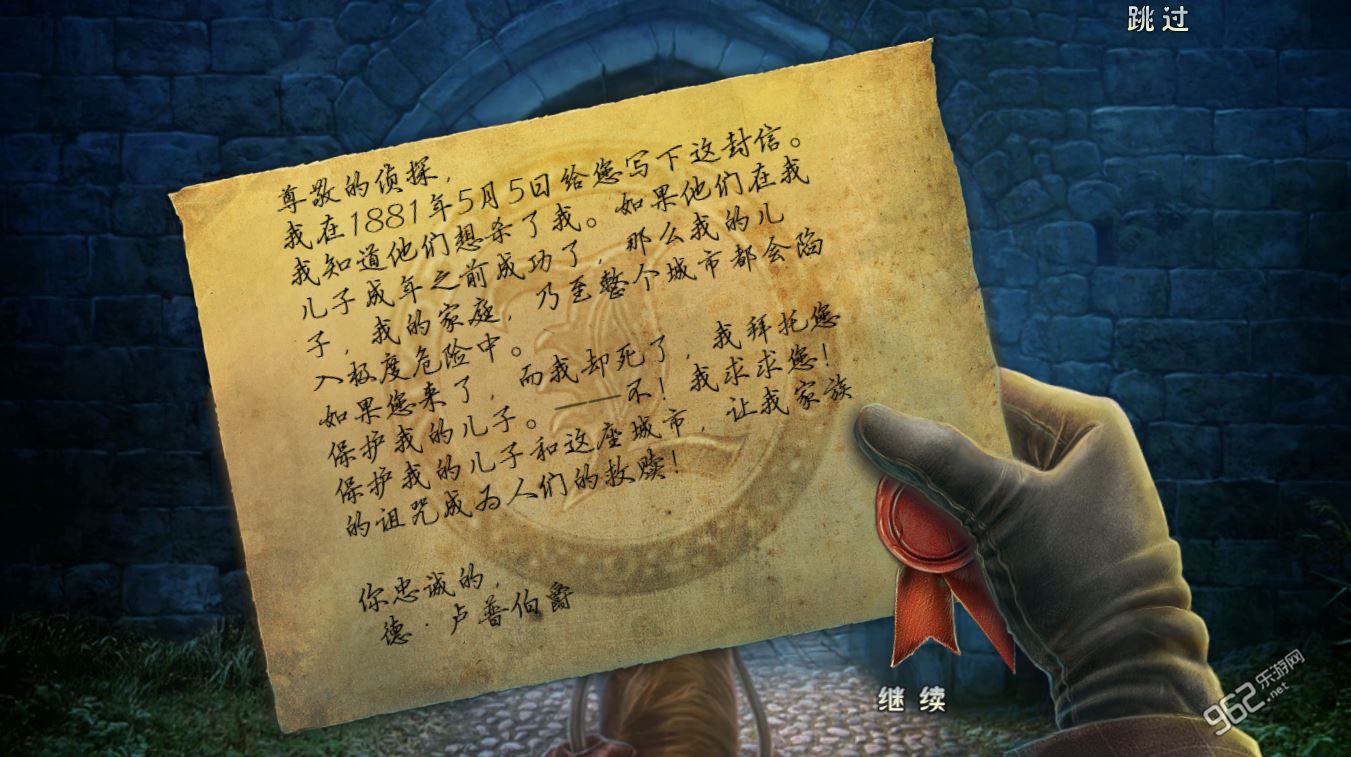 跳过
尊敬的侦探，
我在1881年5月5日给您写下这封信。
我知道他们想杀了我。如果他们在我
儿子成年之前成功了，那么我的儿
子，我的家庭，乃至整个城市都会陷
入极度危险中。
如果您来了，而我却死了，我拜托您
保护我的儿子。——不！我求求您！
保护我的儿子和这座城市，让我家族
的诅咒成为人们的救赎！
你忠诚的，
德·卢普伯爵
继续
962乐游网
.net